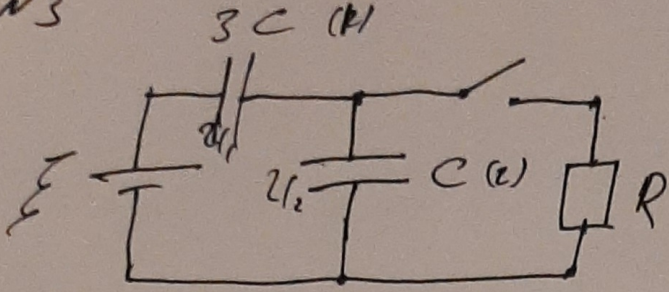 N3
3C (1)
U₁
ξ
U₂
C (2)
R